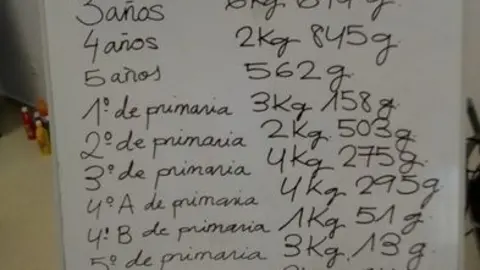 3 años
4 años 2Kg 845g
5 años 562 g.
1º de primaria 3Kg 158g.
2º de primaria 2Kg 503g.
3º de primaria 4Kg 275g.
4º A de primaria 4Kg 295g
4º B de primaria 1Kg 51g.
5º de primaria 3Kg 13g.